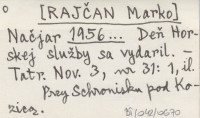 [RAJČAN Marko]
Načjar 1956... Deň Hor-
skej služby sa vydaril. -
Tatr. Nov. 3, nr 31: 1, il.
Prey Schronisku pod Ko-
zicą.